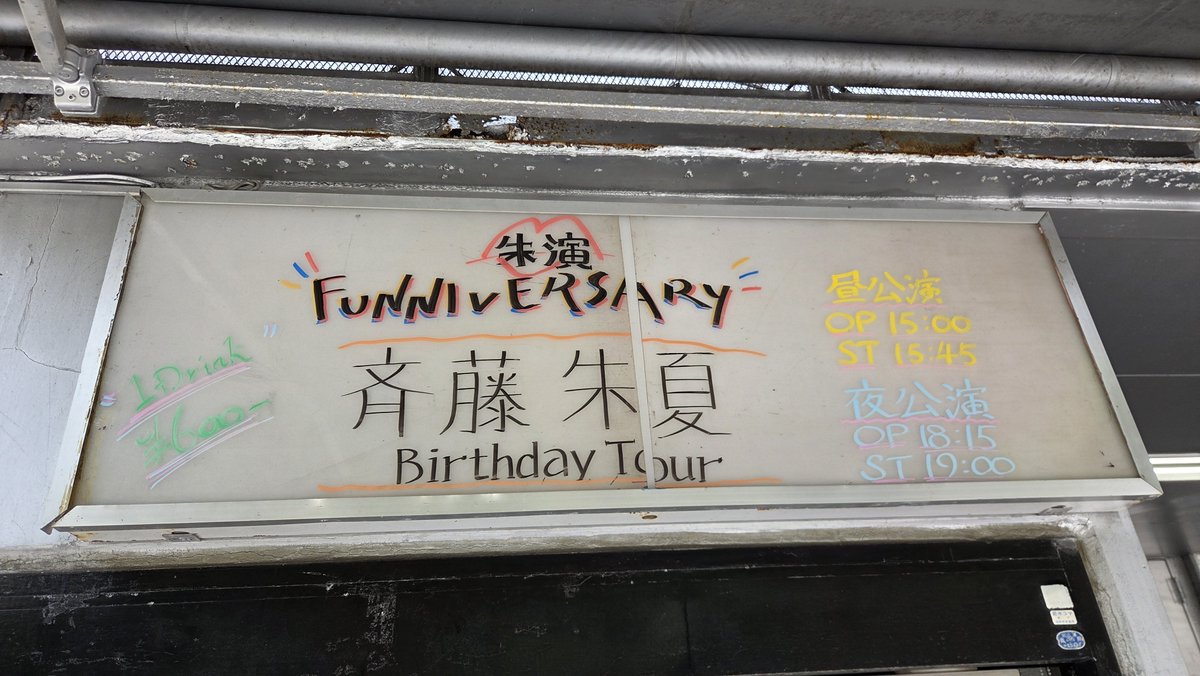 朱演
FUNNIVERSARY
斉藤朱夏
Birthday Tour
1 Drink
¥600-
昼公演
OP 15:00
ST 15:45
夜公演
OP 18:15
ST 19:00